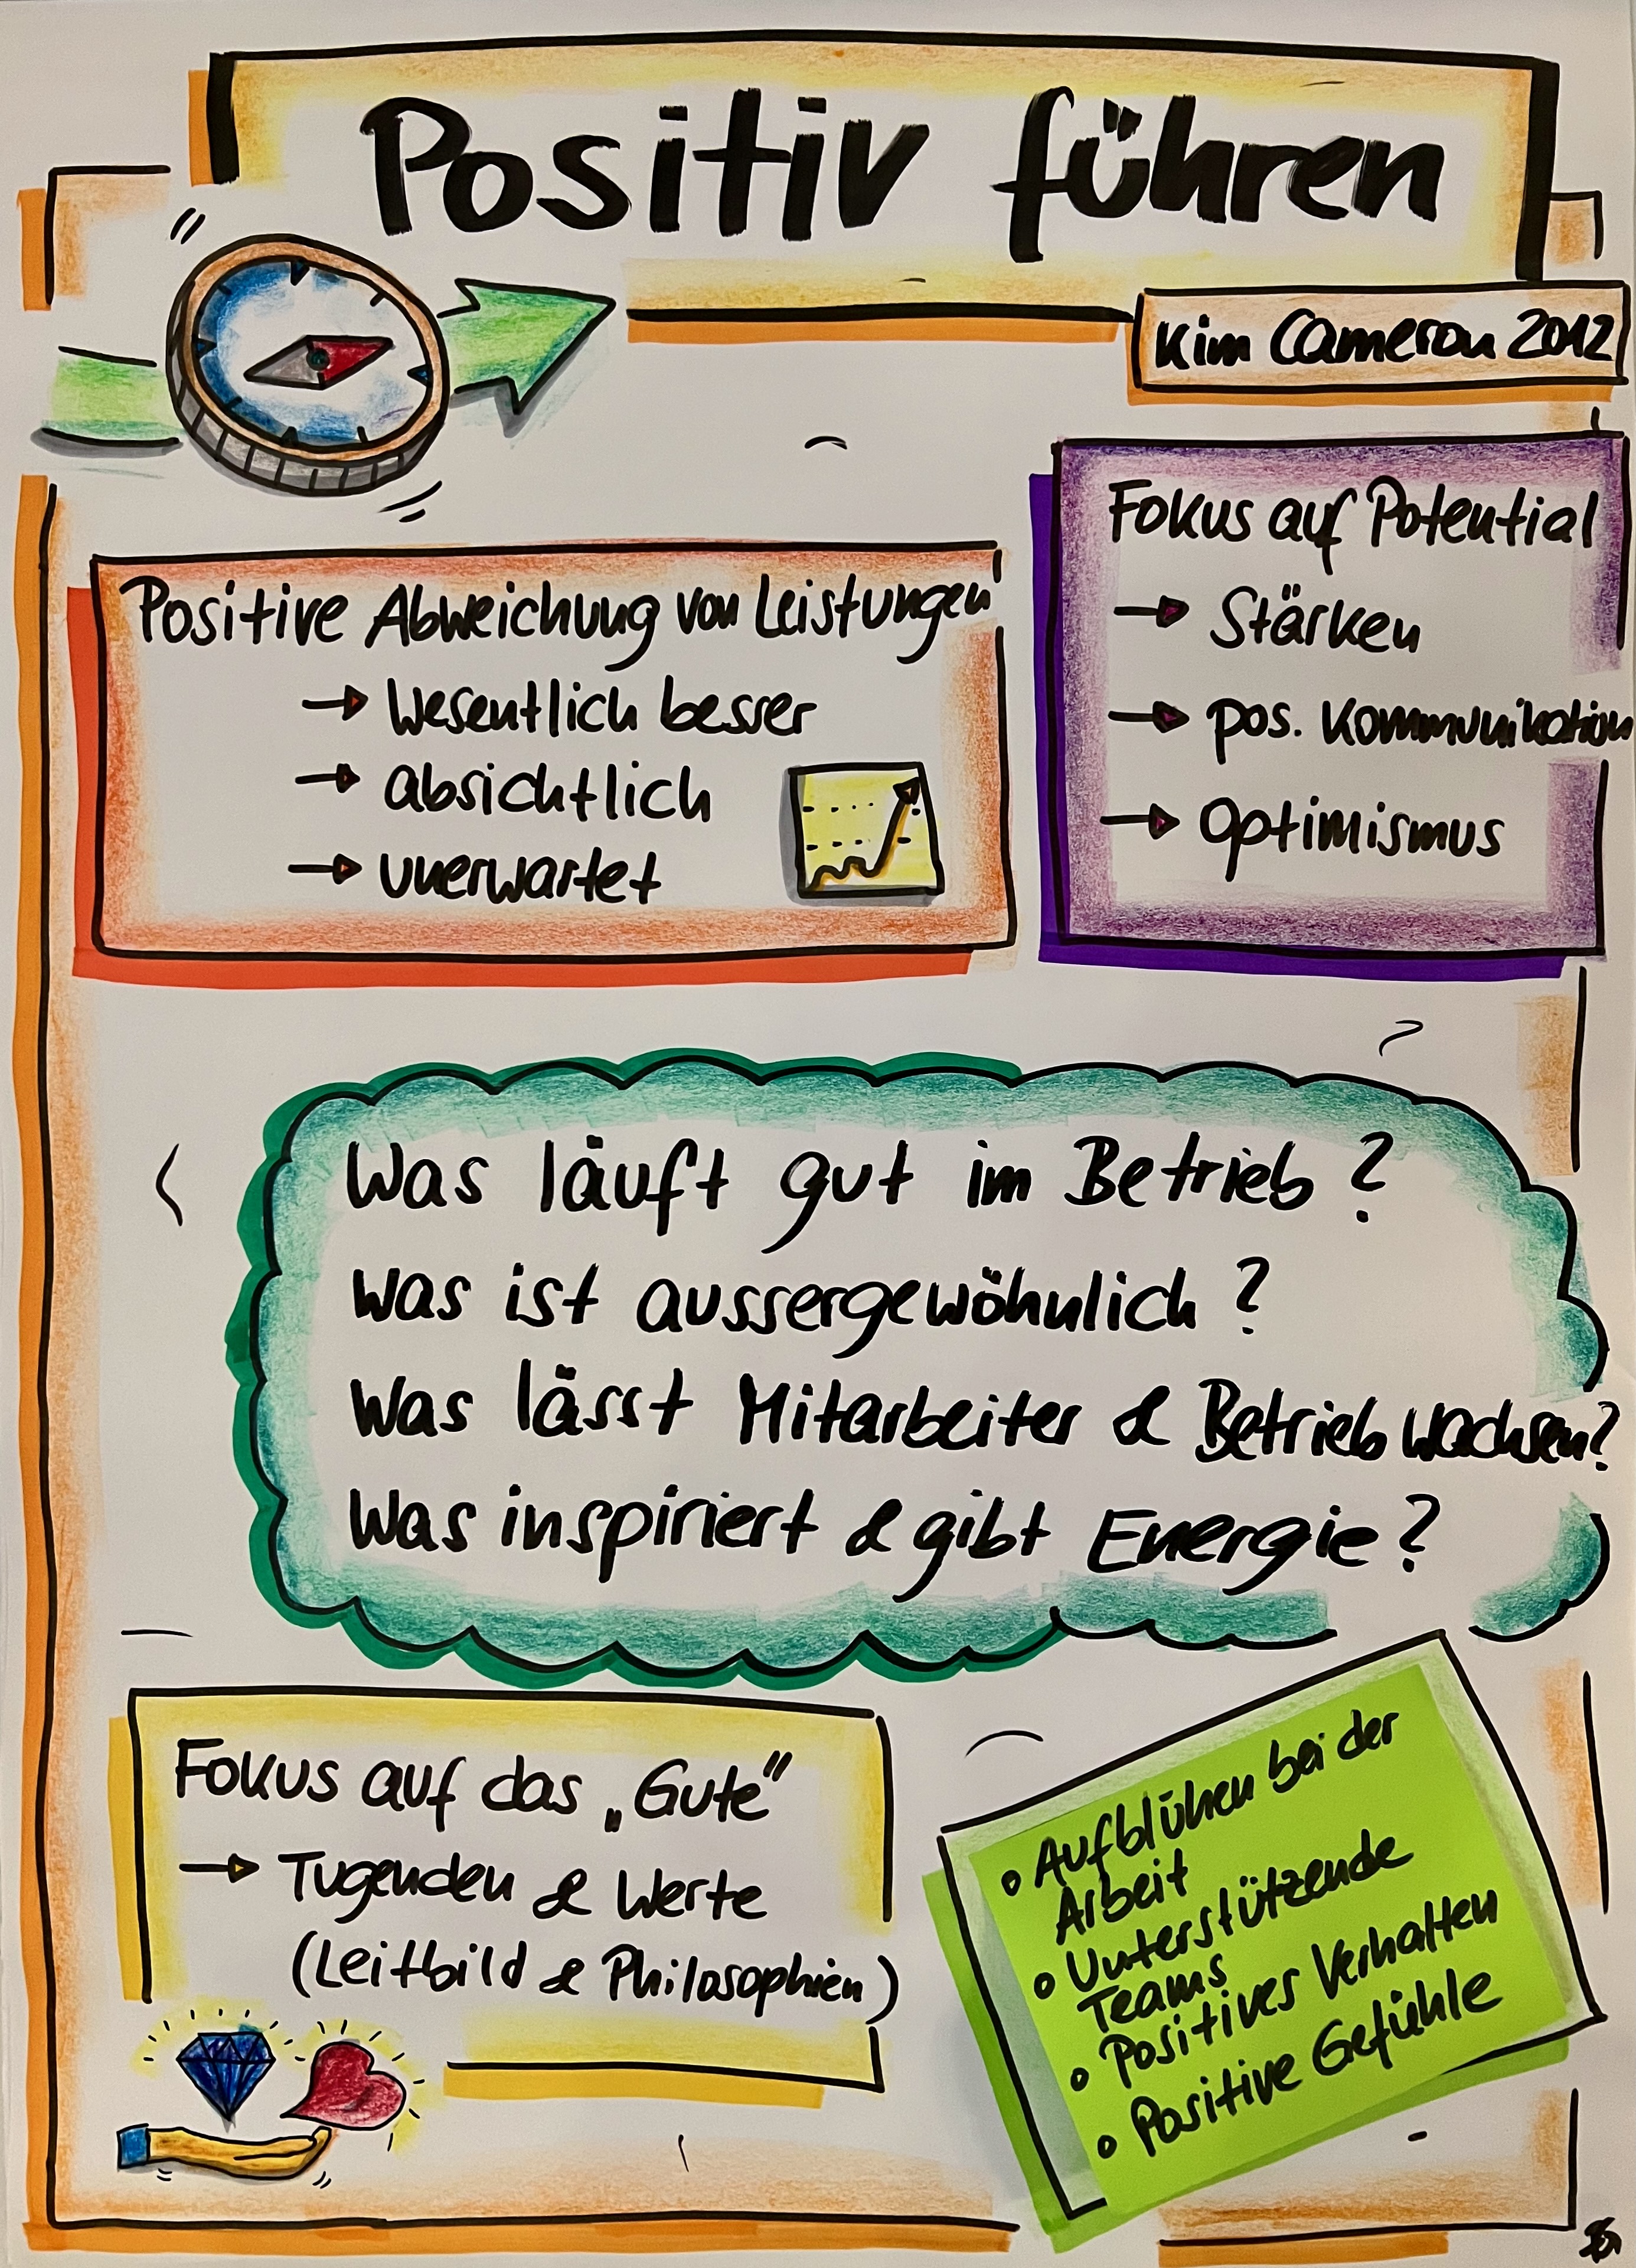 Positiv führen
Kim Cameron 2012
Positive Abweichung von Leistungen
→ wesentlich besser
→ absichtlich
→ unerwartet
Fokus auf Potential
→ Stärken
→ pos. Kommunikation
→ Optimismus
Was läuft gut im Betrieb?
Was ist aussergewöhnlich?
Was lässt Mitarbeiter & Betrieb wachsen?
Was inspiriert & gibt Energie?
Fokus auf das „Gute"
→ Tugenden & Werte
(Leitbild & Philosophien)
• Aufblühen bei der
Arbeit
• Unterstützende
Teams
• Positives Verhalten
• Positive Gefühle